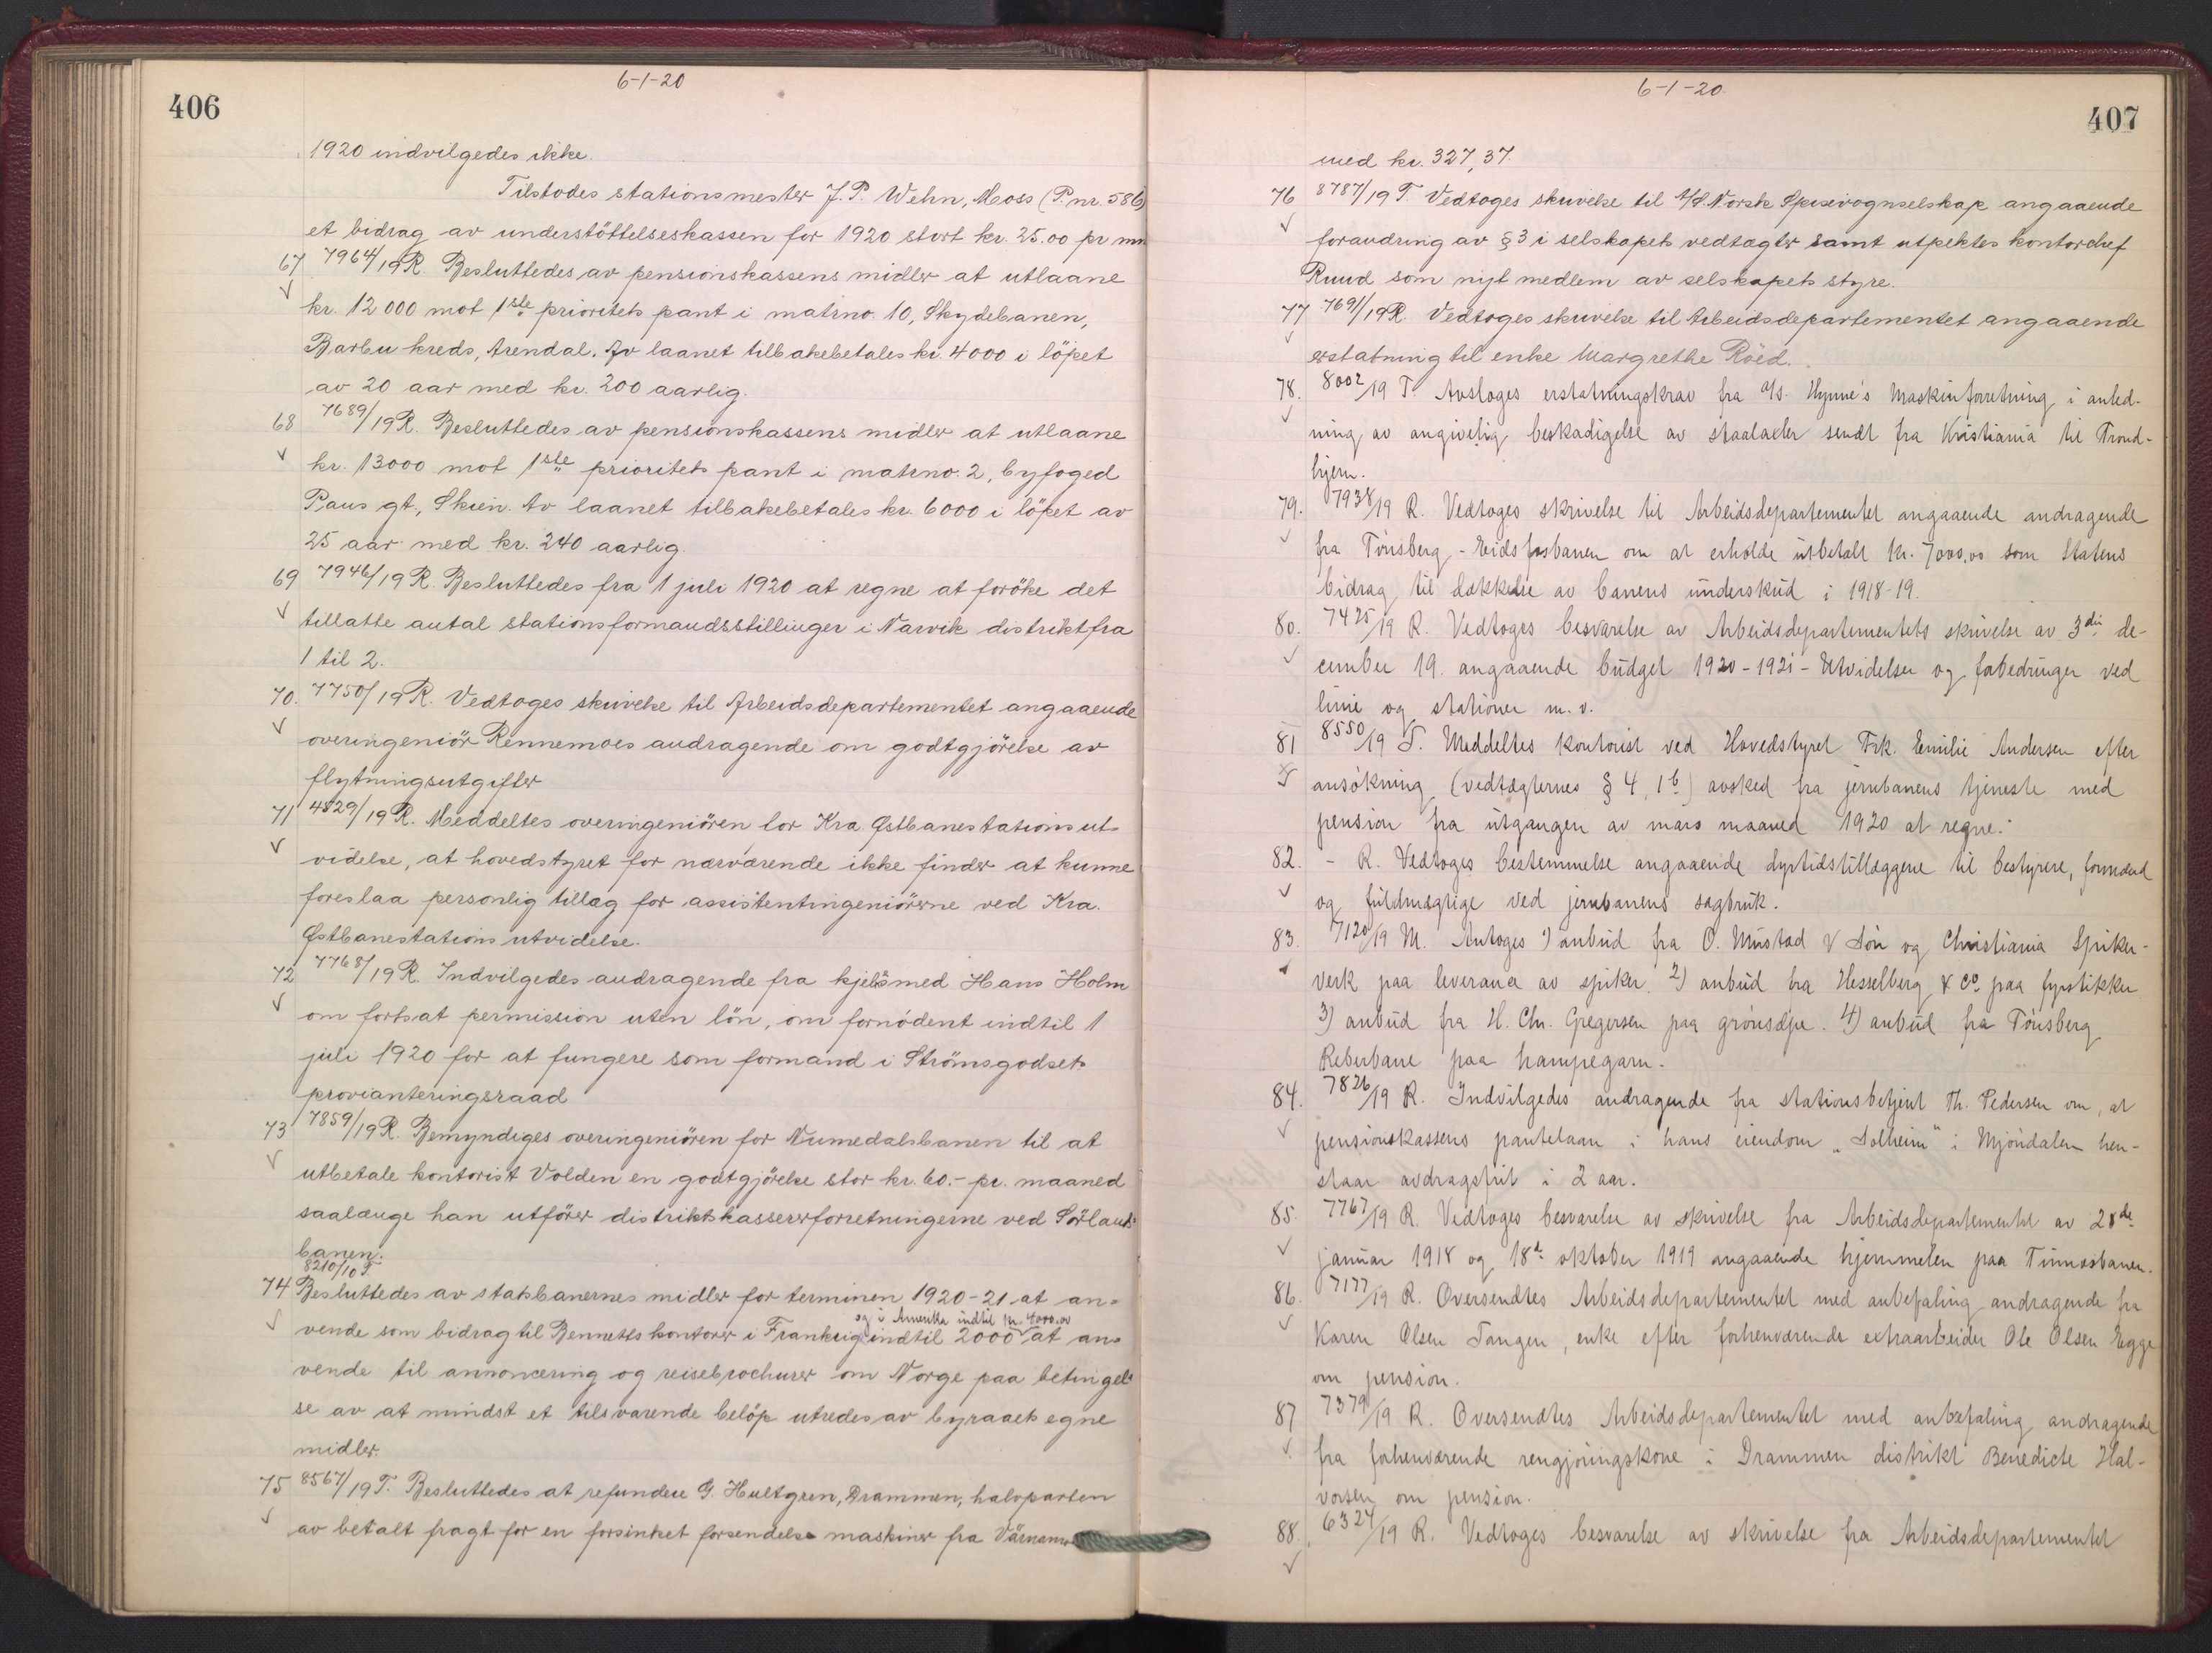 406
6-1-20
1920 indvilgedes ikke.
Tilstodes stationsmester J. P. Wehn, Moss (P. nr. 586)
et bidrag av understöttelseskassen for 1920 stort kr. 25.00 pr mn
67 7964/19 R. Besluttedes av pensionskassens midler at utlaane
kr. 12 000 mot 1ste prioritets pant i matrno. 10, Skydebanen,
Barbu kreds, Arendal. Av laanet tilbakebetales kr. 4000 i löpet
av 20 aar med kr. 200 aarlig.
68 7689/19 R. Besluttedes av pensionskassens midler at utlaane
kr. 13000 mot 1ste prioritets pant i matrno. 2, byfoged
Paus gt, Skien. Av laanet tilbakebetales kr. 6000 i löpet av
25 aar med kr. 240 aarlig.
69 7946/19 R. Besluttedes fra 1 juli 1920 at regne at foröke det
tillatte antal stationsformandsstillinger i Narvik distrikt fra
1 til 2.
70. 7750/19 R. Vedtoges skrivelse til Arbeidsdepartementet angaaende
overingeniör Rennemoes andragende om godtgjörelse av
flytningsutgifter
71 4829/19 R. Meddeltes overingeniören for Kra Østbanestations ut-
videlse, at hovedstyret for nærværende ikke finder at kunne
foreslaa personlig tillæg for assistentingeniörerne ved Kra.
Østbanestations utvidelse.
72 7768/19 R. Indvilgedes andragende fra kjelsmed Hans Holm
om fortsat permission uten lön, om fornödent indtil 1
juli 1920 for at fungere som formand i Strömsgodsets
provianteringsraad
73 7859/19 R. Bemyndiges overingeniören for Numedalsbanen til at
utbetale kontorist Volden en godtgjörelse stor kr. 60.- pr. maaned
saalænge han utförer distriktskassererforretningerne ved Sörlands-
banen.
8210/10 T.
74 Besluttedes av statsbanernes midler for terminen 1920-21 at an-
og i Amerika indtil kr. 4000.00
vende som bidrag til Bennetts kontorer i Frankrig indtil 2000 at an-
vende til annoncering og reisebrochurer om Norge paa betingel-
se av at mindst et tilsvarende belöp utredes av byraaets egne
midler.
75 8567/19 T. Besluttedes at refundere G. Hultgren, Drammen, halvparten
av betalt fragt for en forsinket forsendelse maskiner fra Värnamo
6-1-20.
407
med kr. 327,37.
76 8787/19 T. Vedtoges skrivelse til A/S. Norsk Spisevognselskap angaaende
forandring av § 3 i selskapets vedtægter samt utpektes kontorchef
Ruud som nyt medlem av selskapets styre.
77 7691/19 R. Vedtoges skrivelse til Arbeidsdepartementet angaaende
erstatning til enke Margrethe Röed.
78. 8002/19 T. Avsloges erstatningskrav fra A/S. Hynne's Maskinforretning i anled-
ning av angivelig beskadigelse av staalacler sendt fra Kristiania til Trond-
hjem.
79. 7938/19 R. Vedtoges skrivelse til Arbeidsdepartementet angaaende andragende
fra Tönsberg-Eidsfosbanen om at erholde utbetalt kr. 7000,00 som Statens
bidrag til dækkelse av banens underskud i 1918-19.
80. 7425/19 R. Vedtoges besvarelse av Arbeidsdepartementets skrivelse av 3die de-
cember 19. angaaende budget 1920-1921 - Utvidelser og forbedringer ved
linie og stationer m. v.
81 8550/19 T. Meddeltes kontorist ved Hovedstyret Frk. Emilie Andersen efter
ansökning (vedtægternes § 4, 1b) avsked fra jernbanens tjeneste med
pension fra utgangen av mars maaned 1920 at regne.
82. - R. Vedtoges bestemmelse angaaende dyrtidstillæggene til bestyrere, formænd
og fuldmægtige ved jernbanens sagbruk.
83. 7120/19 M. Antoges 1) anbud fra O. Mustad & Sön og Christiania Spiker-
verk paa leverance av spiker. 2) anbud fra Hesselberg & Co paa fyrstikker
3) anbud fra H. Chr. Gregersen paa grönsæpe. 4) anbud fra Tönsberg
Reberbane paa hampegarn.
84. 7826/19 R. Indvilgedes andragende fra stationsbetjent Th. Pedersen om, at
pensionskassens pantelaan i hans eiendom „Solheim“ i Mjöndalen hen-
staar avdragsfrit i 2 aar.
85. 7767/19 R. Vedtoges besvarelse av skrivelse fra Arbeidsdepartementet av 28de
januar 1918 og 18de oktober 1919 angaaende hjemmelen paa Tinnosbanen.
86. 7177/19 R. Oversendtes Arbeidsdepartementet med anbefaling andragende fra
Karen Olsen Tangen, enke efter forhenværende extraarbeider Ole Olsen Egge
om pension.
87 7379/19 R. Oversendtes Arbeidsdepartementet med anbefaling andragende
fra forhenværende rengjöringskone i Drammen distrikt Benedicte Hal-
vorsen om pension.
88. 6324/19 R. Vedtoges besvarelse av skrivelse fra Arbeidsdepartementet